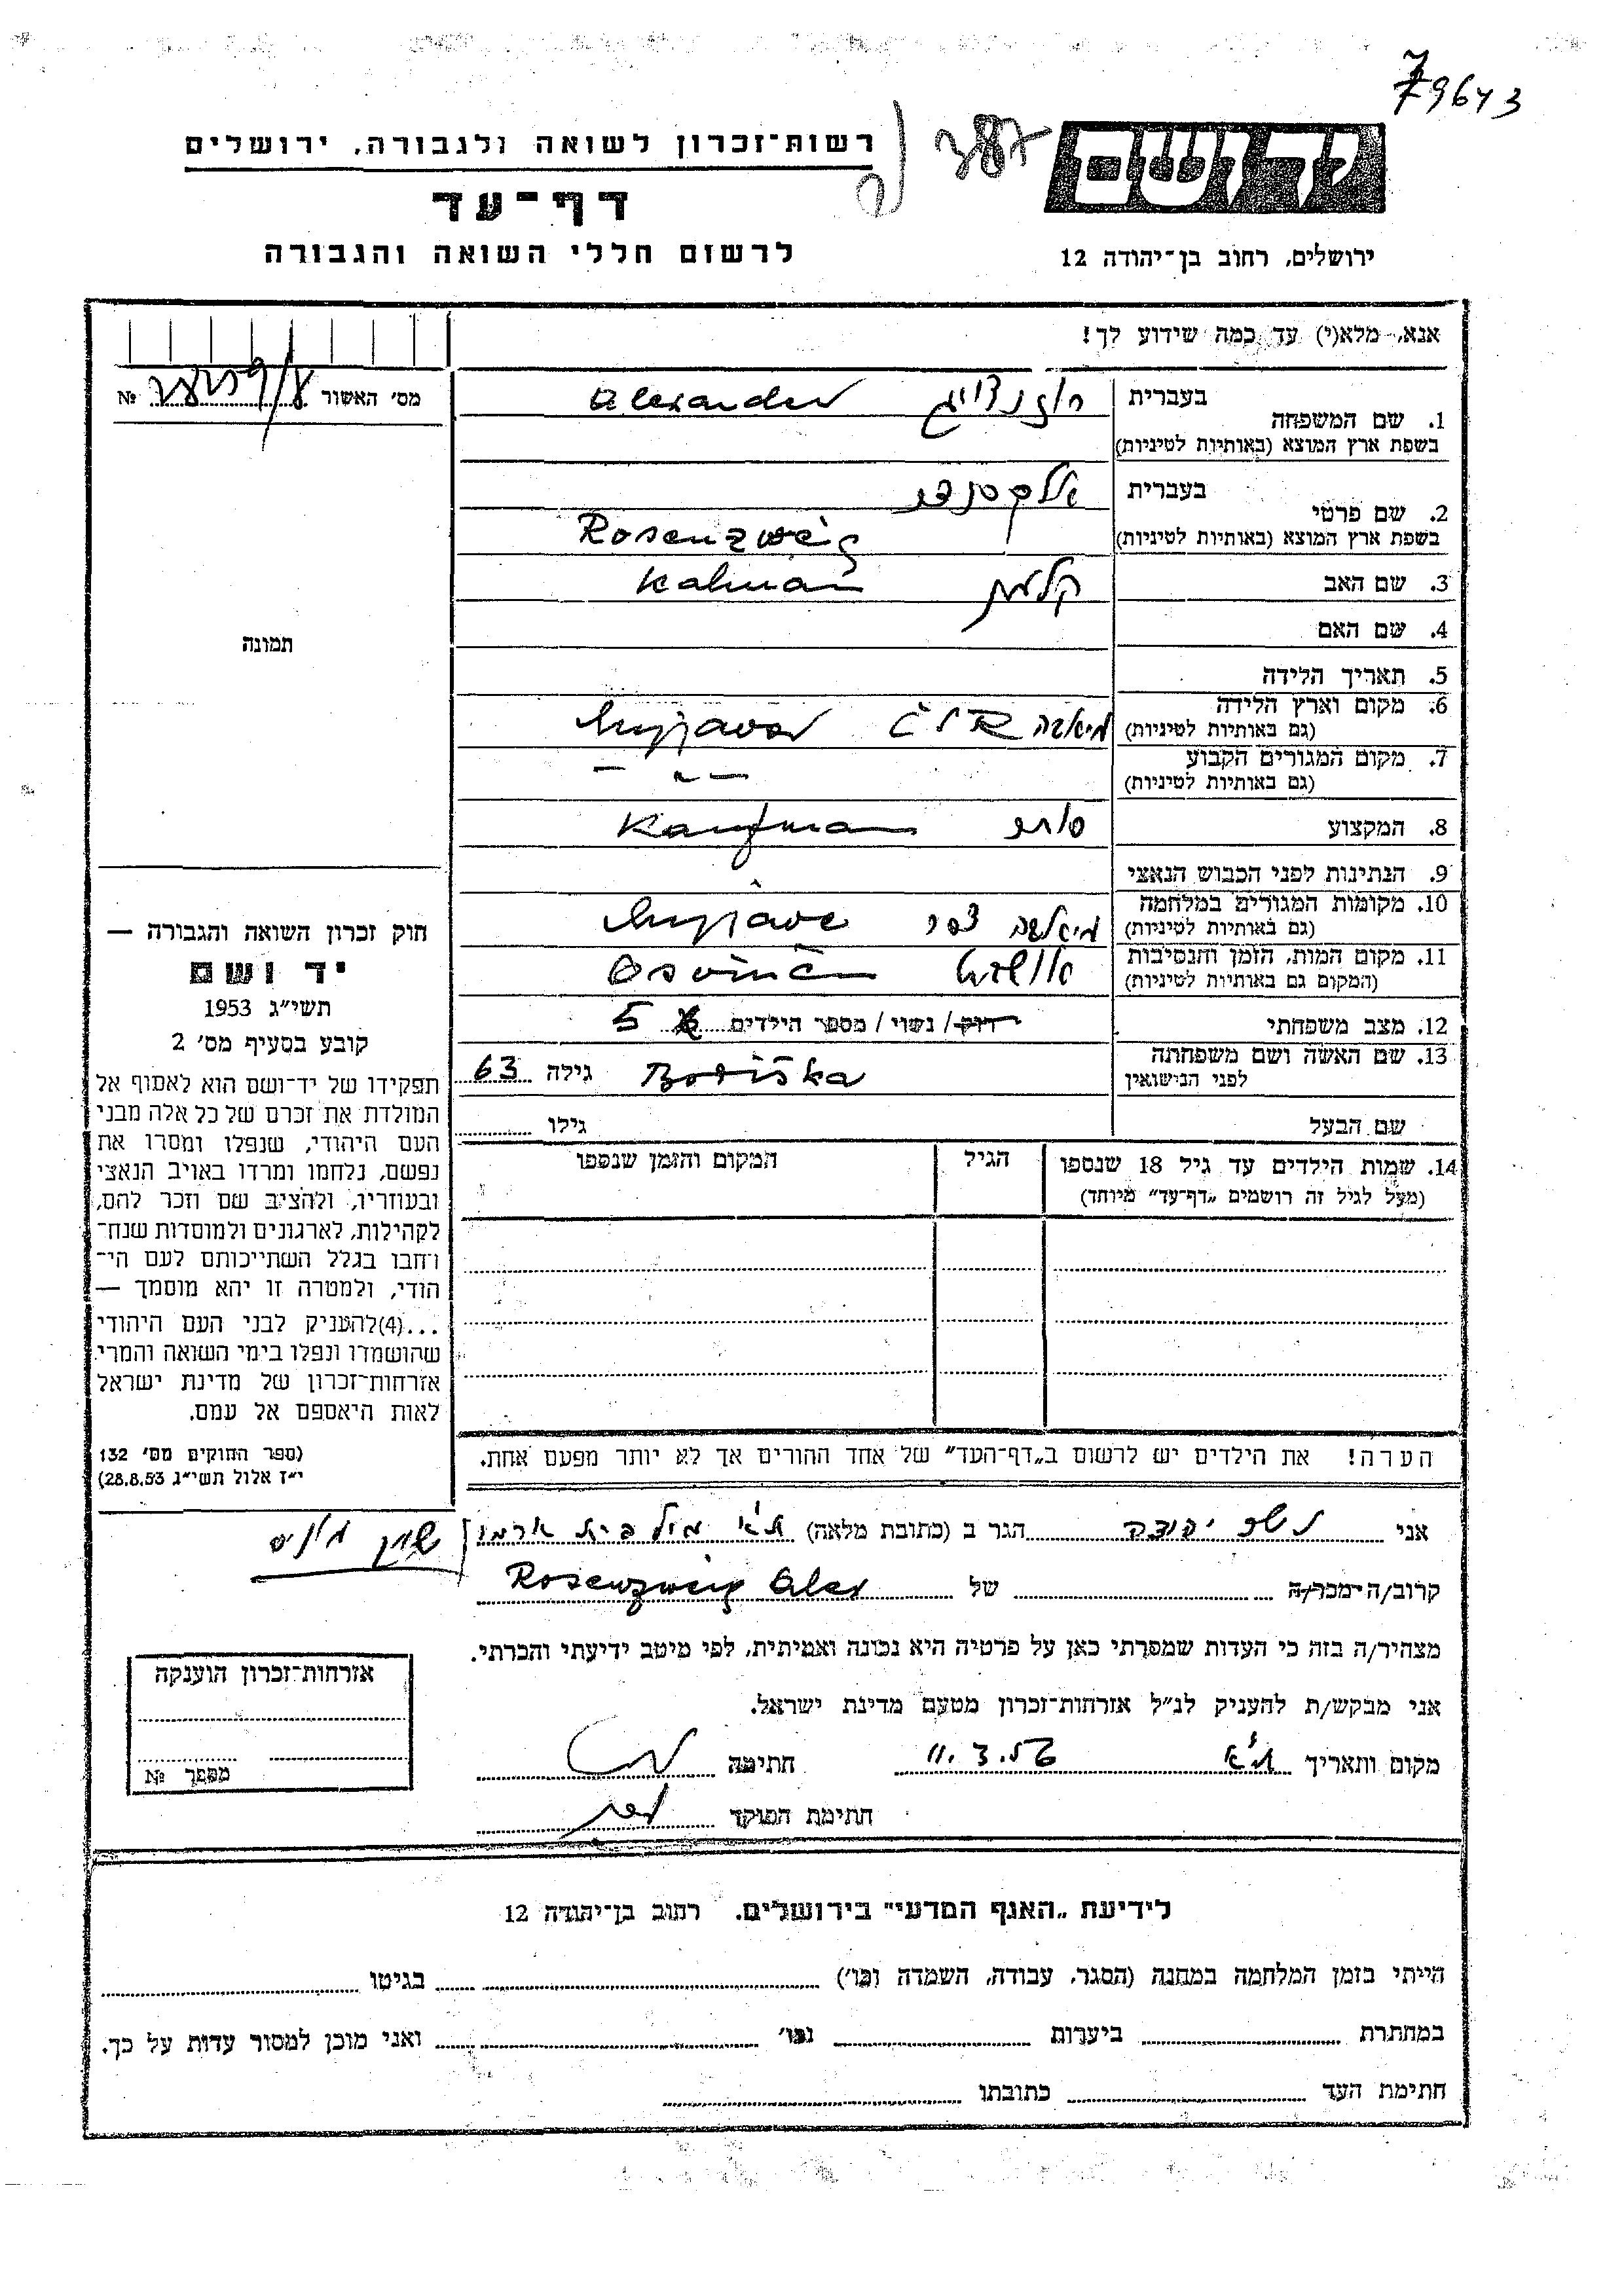 79643
רשות־זכרון לשואה ולגבורה, ירושלים
יד ושם
דף־עד
לרשום חללי השואה והגבורה
ירושלים, רחוב בן־יהודה 12
אנא, מלא(י) עד כמה שידוע לך!
מס׳ האשור № 
1. שם המשפחה בעברית רוזנצוייג Alexander
בשפת ארץ המוצא (באותיות לטיניות)
2. שם פרטי בעברית אלכסנדר
בשפת ארץ המוצא (באותיות לטיניות) Rosenzweig
3. שם האב קלמן Kalman
4. שם האם
תמונה
5. תאריך הלידה
6. מקום וארץ הלידה
(גם באותיות לטיניות)
7. מקום המגורים הקבוע
(גם באותיות לטיניות) — " —
8. המקצוע סוחר Kaufman
9. הנתינות לפני הכבוש הנאצי
10. מקומות המגורים במלחמה
(גם באותיות לטיניות)
11. מקום המות, הזמן והנסיבות
(המקום גם באותיות לטיניות)
12. מצב משפחתי רוק / נשוי / מספר הילדים 5
13. שם האשה ושם משפחתה Boriška גילה 63
לפני הנישואין
שם הבעל גילו
14. שמות הילדים עד גיל 18 שנספו הגיל המקום והזמן שנספו
(מעל לגיל זה רושמים „דף־עד” מיוחד)
חוק זכרון השואה והגבורה —
יד ושם
תשי״ג 1953
קובע בסעיף מס׳ 2
תפקידו של יד־ושם הוא לאסוף אל
המולדת את זכרם של כל אלה מבני
העם היהודי, שנפלו ומסרו את
נפשם, נלחמו ומרדו באויב הנאצי
ובעוזריו, ולהציב שם וזכר להם,
לקהילות, לארגונים ולמוסדות שנח־
רחבו בגלל השתייכותם לעם הי־
הודי, ולמטרה זו יהא מוסמך —
...(4)להעניק לבני העם היהודי
שהושמדו ונפלו בימי השואה והמרי
אזרחות־זכרון של מדינת ישראל
לאות היאספם אל עמם.
(ספר החוקים מס׳ 132
י״ז אלול תשי״ג 28.8.53)
הערה! את הילדים יש לרשום ב„דף־העד” של אחד ההורים אך לא יותר מפעם אחת.
אני יהודה הגר ב (כתובת מלאה) ת״א
קרוב/ה־מכר/ה של Rosenzweig Alex
מצהיר/ה בזה כי העדות שמסרתי כאן על פרטיה היא נכונה ואמיתית, לפי מיטב ידיעתי והכרתי.
אני מבקש/ת להעניק לנ״ל אזרחות־זכרון מטעם מדינת ישראל.
מקום ותאריך ת״א חתימה
חתימת הפוקד
אזרחות־זכרון הוענקה
מספר №
לידיעת „האגף המדעי” בירושלים, רחוב בן־יהודה 12
הייתי בזמן המלחמה במחנה (הסגר, עבודה, השמדה וכו׳) בגיטו
במחתרת ביערות וכו׳ ואני מוכן למסור עדות על כך.
חתימת העד כתובתו